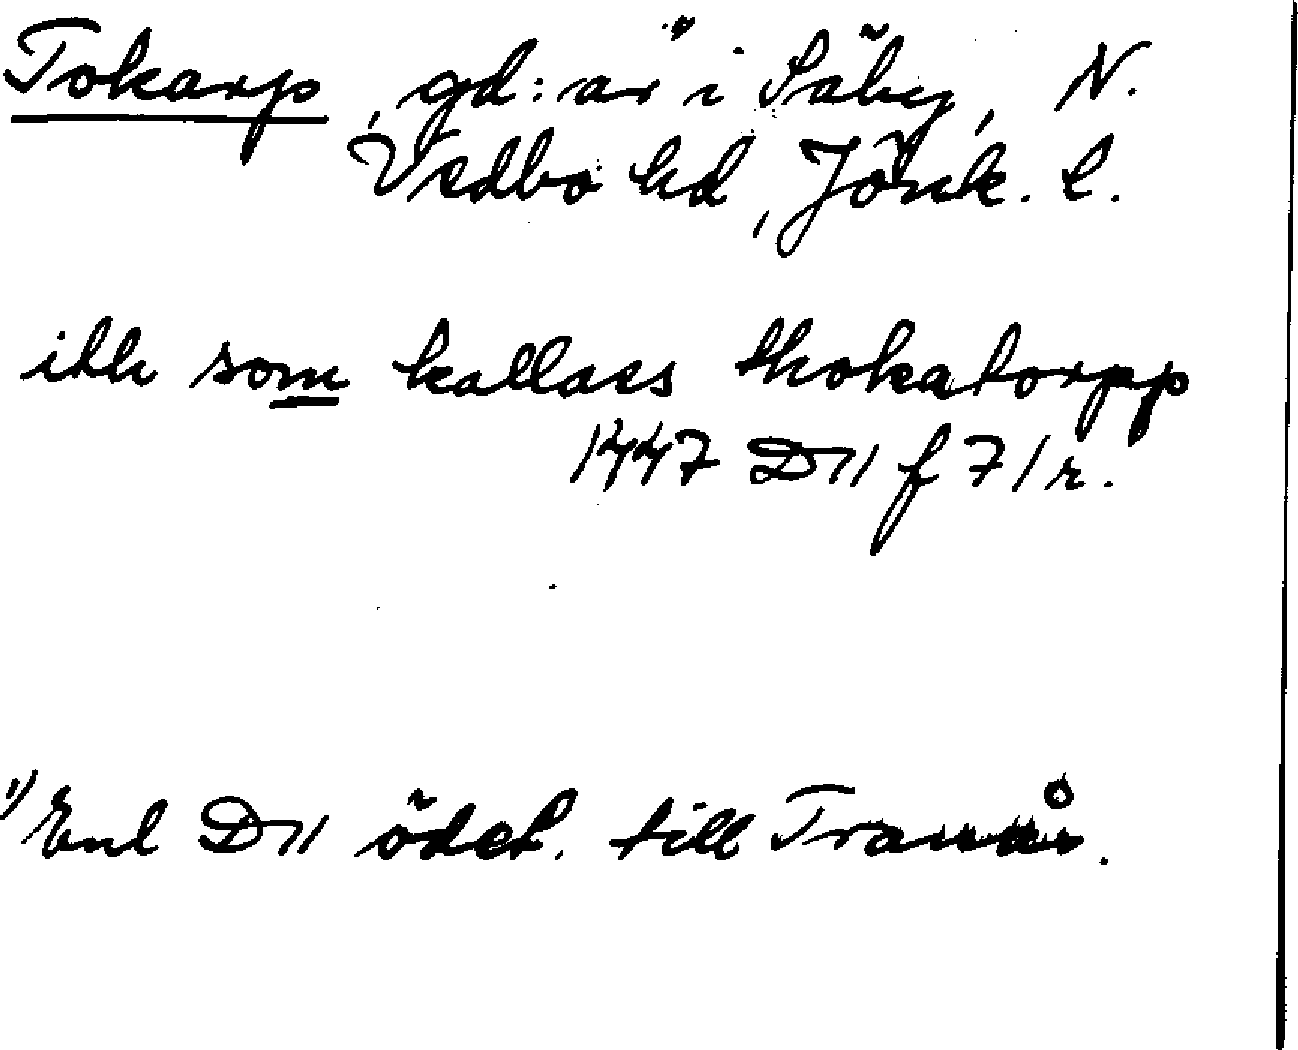 Tokarp, gd:ar¹⁾ i Säby, N.
Vedbo hd, Jönk. l.
ikk som kallass thokatorpp
1447 D11 f 71r.
¹⁾ Enl D11 ödet. till Tranås.